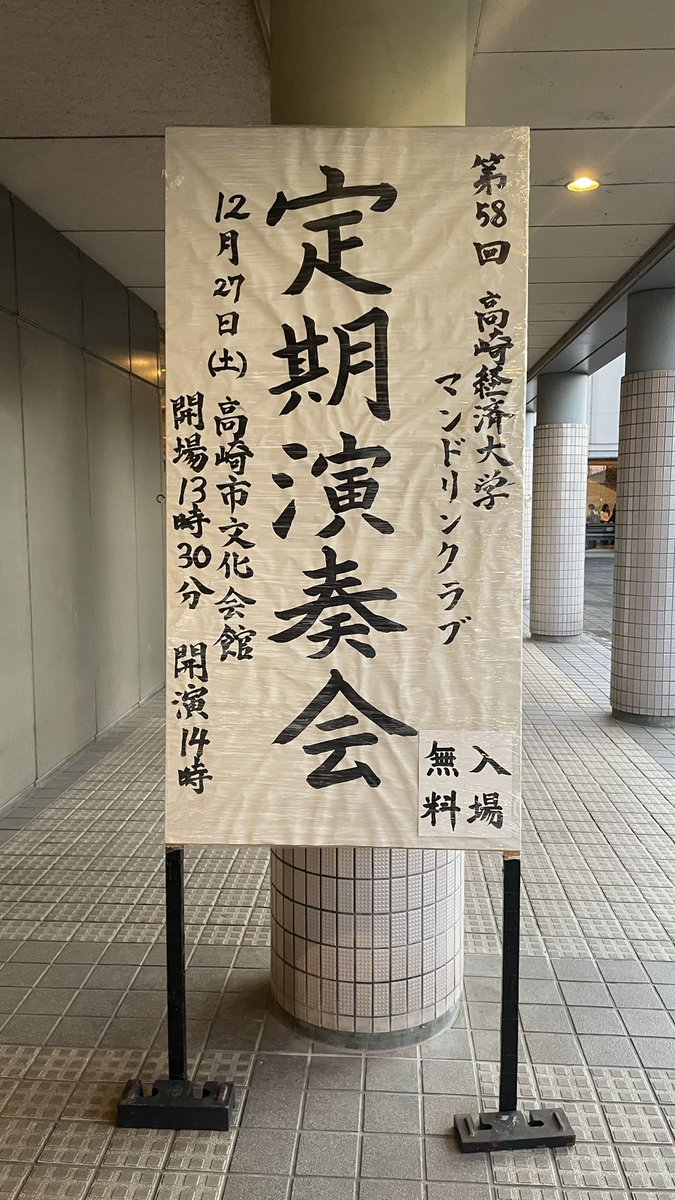 第58回 高崎経済大学
マンドリンクラブ
定期演奏会
12月27日(土) 高崎市文化会館
開場13時30分 開演14時
入場
無料